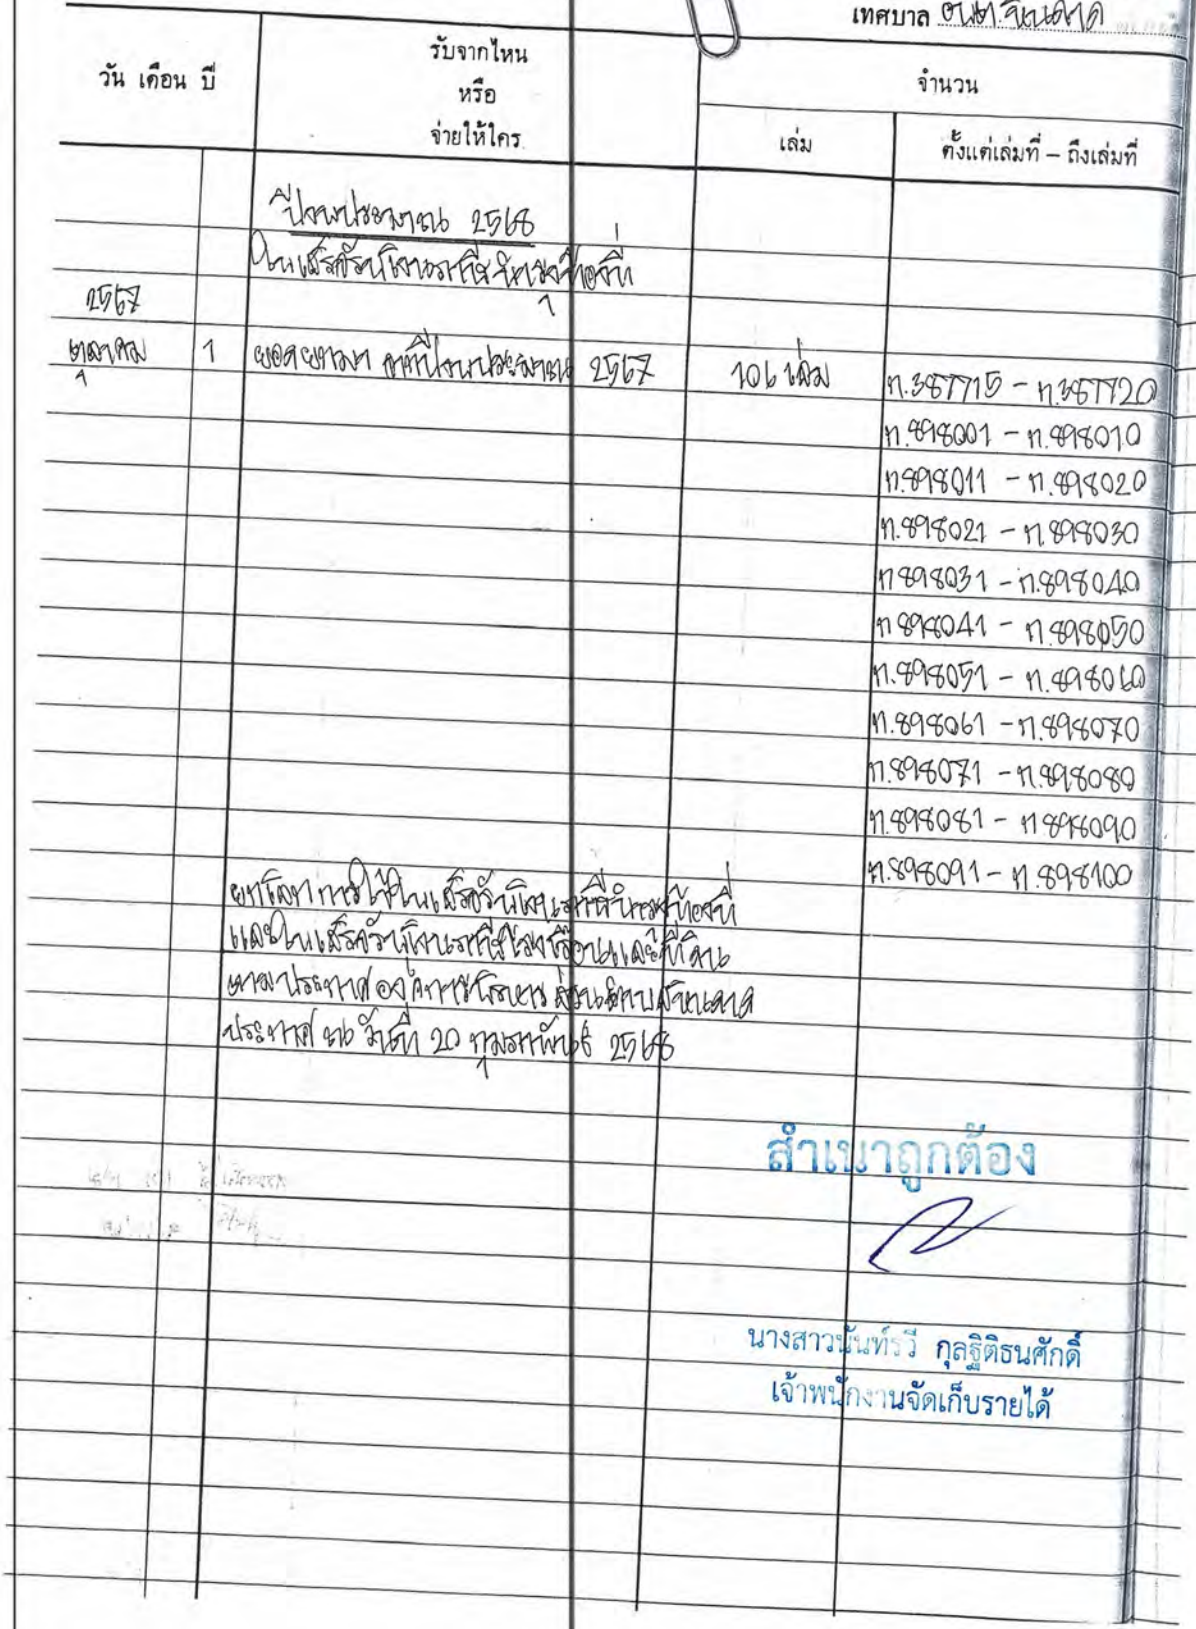 เทศบาล อบต.จันดาด
วัน เดือน ปี
รับจากไหน
หรือ
จ่ายให้ใคร
จำนวน
เล่ม
ตั้งแต่เล่มที่ – ถึงเล่มที่
ปีงบประมาณ 2568
ใบเสร็จรับเงินภาษีบำรุงท้องที่
2567
ตุลาคม 1 ยอดยกมา จากปีงบประมาณ 2567 106 เล่ม ท.387715 - ท.387720
ท.898001 - ท.898010
ท.898011 - ท.898020
ท.898021 - ท.898030
ท.898031 - ท.898040
ท.898041 - ท.898050
ท.898051 - ท.898060
ท.898061 - ท.898070
ท.898071 - ท.898080
ท.898081 - ท.898090
ท.898091 - ท.898100
ยกเลิกการใช้ใบเสร็จรับเงินภาษีบำรุงท้องที่
และใบเสร็จรับเงินภาษีโรงเรือนและที่ดิน
ตามประกาศองค์การบริหารส่วนตำบล
ประกาศ ณ วันที่ 20 กุมภาพันธ์ 2568
สำเนาถูกต้อง
นางสาวนันท์รวี กุลฐิติธนศักดิ์
เจ้าพนักงานจัดเก็บรายได้